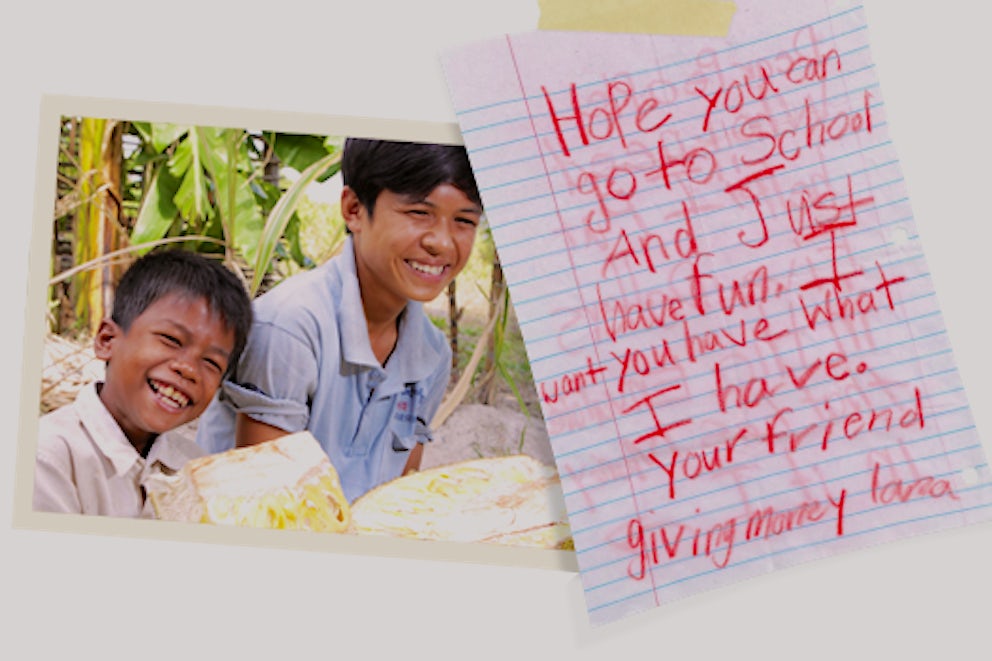 Hope you can
go to School
And Just
have fun. I
want you have what
I have.
your friend
giving money lara